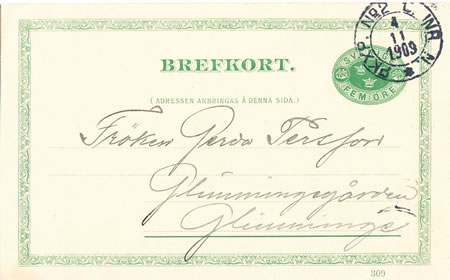 BREFKORT.
(ADRESSEN ANBRINGAS Å DENNA SIDA.)
SVERIGE
FEM ÖRE
PKXP. No2 L. INR. N.
4
11
1909
Fröken Gerda Persson
Glimmingegården
Glimminge
309